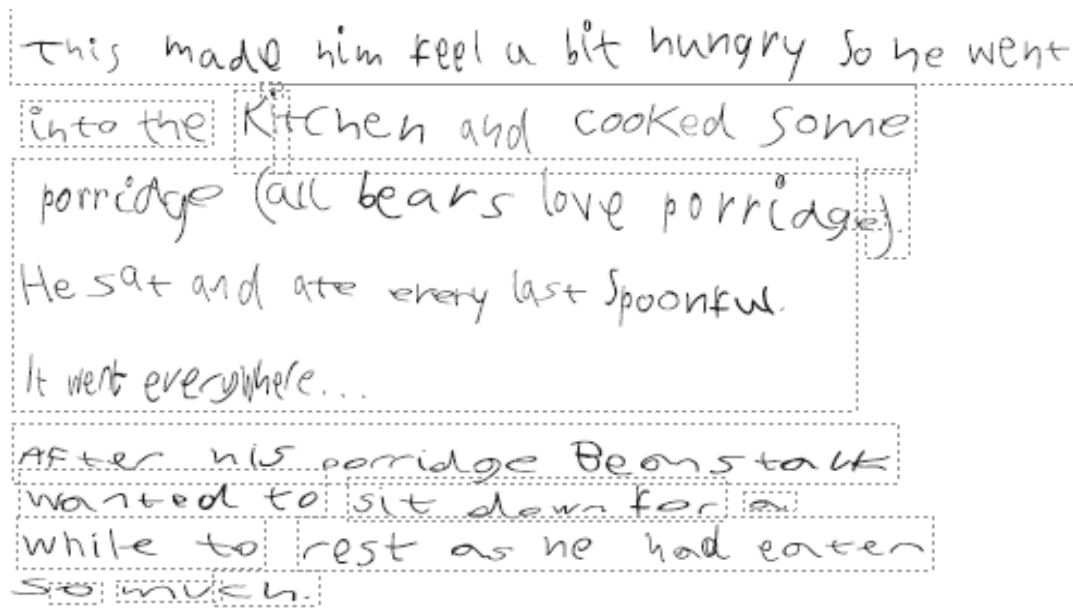 This made him feel a bit hungry so he went
into the Kitchen and cooked some
porridge (all bears love porridge).
He sat and ate every last spoonful.
It went everywhere...
After his porridge Beanstalk
wanted to sit down for a
while to rest as he had eaten
so much.